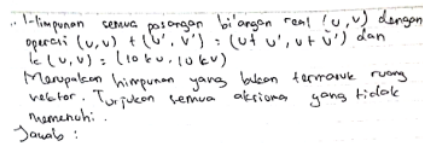 1. Himpunan semua pasangan bilangan real (u, v) dengan
operasi (u, v) + (u', v') = (u + u', v + v') dan
k (u, v) = (10 k u, 10 k v)
Merupakan himpunan yang bukan termasuk ruang
vektor. Tunjukan semua aksioma yang tidak
memenuhi.
Jawab :